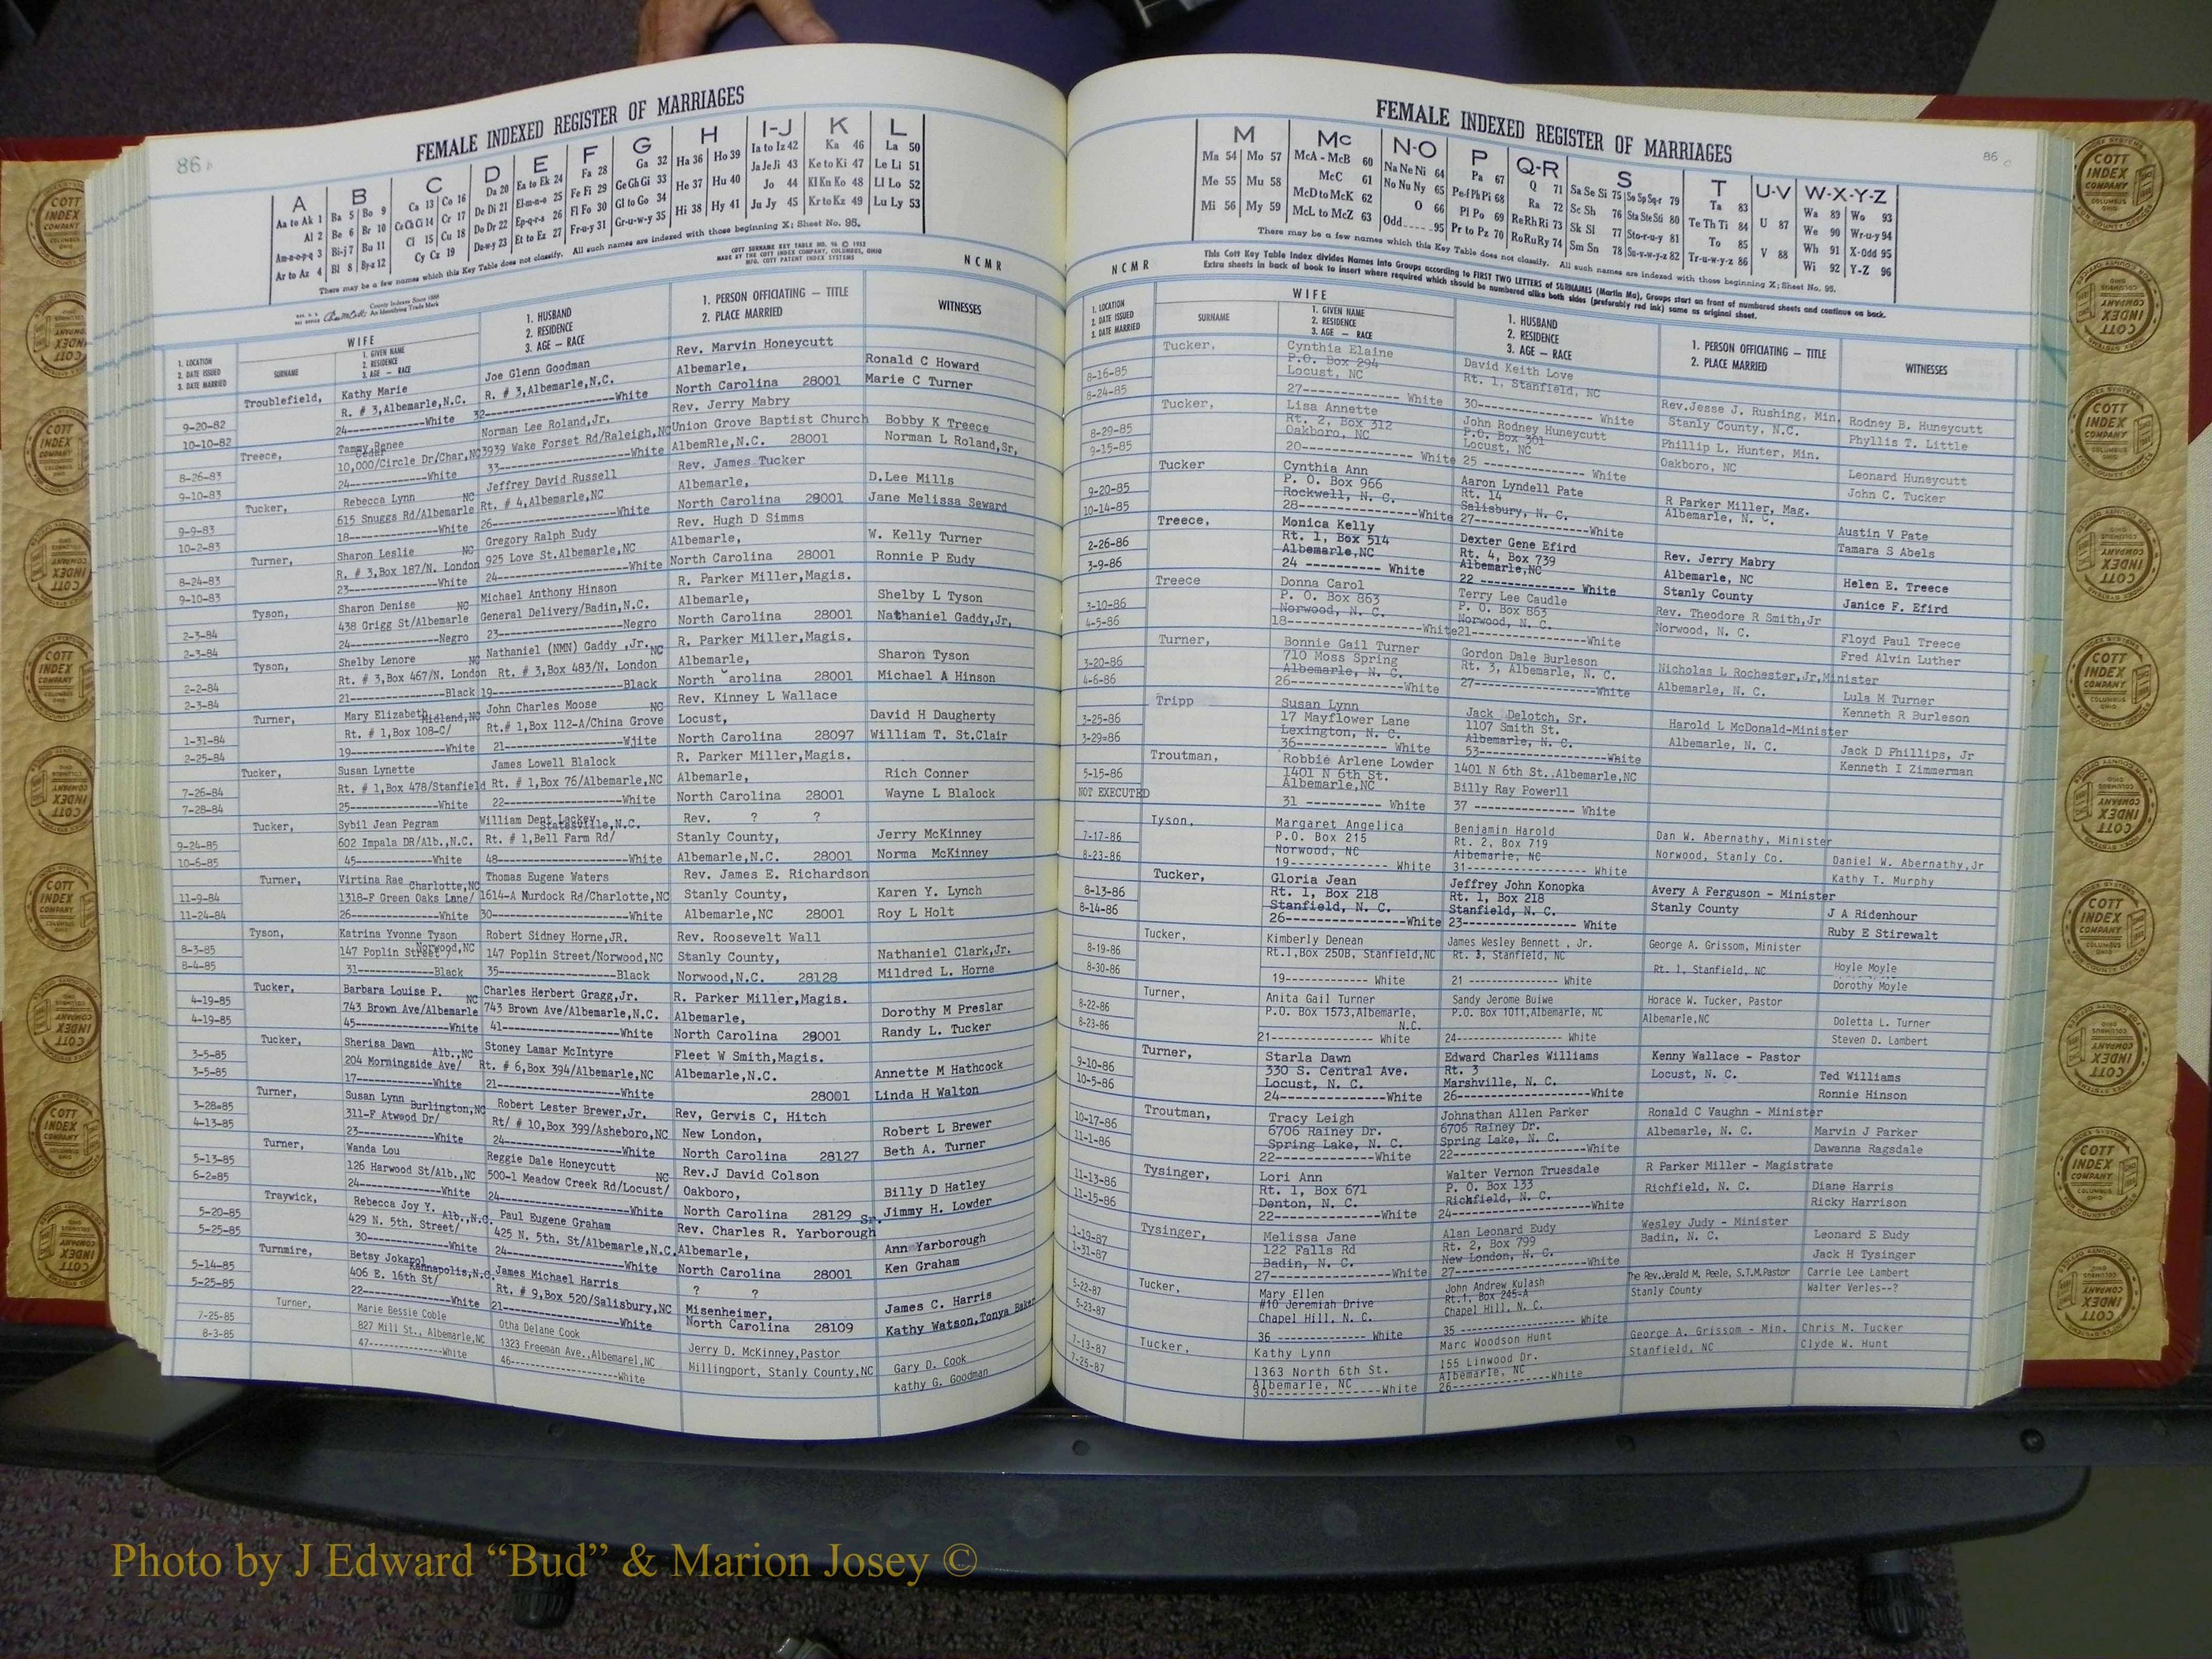 86
FEMALE INDEXED REGISTER OF MARRIAGES
A B C D E F G H I-J K L
Aa to Ak 1 Ba 5 Bo 9 Ca 13 Co 16 Da 20 Ea to Ek 24 Fa 28 Ga 32 Ha 36 Ho 39 Ia to Iz 42 Ka 46 La 50
Al 2 Be 6 Br 10 Ce Ch Ci 14 Cr 17 De Di 21 El-m-n-o 25 Fe Fi 29 Ge Gh Gi 33 He 37 Hu 40 Ja Je Ji 43 Ke to Ki 47 Le Li 51
Am-n-o-p-q 3 Bi-j 7 Bu 11 Cl 15 Cu 18 Do Dr 22 Ep-q-r-s 26 Fl Fo 30 Gl to Go 34 Hi 38 Hy 41 Jo 44 Kl Kn Ko 48 Ll Lo 52
Ar to Az 4 Bl 8 By-z 12 Cy Cz 19 Du-w-y 23 Et to Ez 27 Fr-u-y 31 Gr-u-w-y 35 Ju Jy 45 Kr to Kz 49 Lu Ly 53
There may be a few names which this Key Table does not classify. All such names are indexed with those beginning X; Sheet No. 95.
COTT SURNAME KEY TABLE NO. 96 © 1952
MADE BY THE COTT INDEX COMPANY, COLUMBUS, OHIO
MFG. COTT PATENT INDEX SYSTEMS
County Indexes Since 1888
An Identifying Trade Mark
N C M R
1. LOCATION
2. DATE ISSUED
3. DATE MARRIED
WIFE
SURNAME
1. GIVEN NAME
2. RESIDENCE
3. AGE — RACE
1. HUSBAND
2. RESIDENCE
3. AGE — RACE
1. PERSON OFFICIATING — TITLE
2. PLACE MARRIED
WITNESSES
Troublefield, Kathy Marie Joe Glenn Goodman Rev. Marvin Honeycutt Ronald C Howard
9-20-82 R. # 3,Albemarle,N.C. R. # 3,Albemarle,N.C. Albemarle, Marie C Turner
10-10-82 24-----White 32-----White North Carolina 28001
Treece, Tammy Renee Norman Lee Roland,Jr. Rev. Jerry Mabry Bobby K Treece
8-26-83 10,000/Circle Dr/Char,NC 3939 Wake Forset Rd/Raleigh,NC Union Grove Baptist Church Norman L Roland,Sr,
9-10-83 24-----White 33-----White AlbemRle,N.C. 28001
Tucker, Rebecca Lynn NC Jeffrey David Russell Rev. James Tucker D.Lee Mills
9-9-83 615 Snuggs Rd/Albemarle Rt. # 4,Albemarle,NC Albemarle, Jane Melissa Seward
10-2-83 18-----White 26-----White North Carolina 28001
Turner, Sharon Leslie NC Gregory Ralph Eudy Rev. Hugh D Simms W. Kelly Turner
8-24-83 R. # 3,Box 187/N. London 925 Love St.Albemarle,NC Albemarle, Ronnie P Eudy
9-10-83 23-----White 24-----White North Carolina 28001
Tyson, Sharon Denise NC Michael Anthony Hinson R. Parker Miller,Magis. Shelby L Tyson
2-3-84 438 Grigg St/Albemarle General Delivery/Badin,N.C. Albemarle, Nathaniel Gaddy,Jr,
2-3-84 24-----Negro 23-----Negro North Carolina 28001
Tyson, Shelby Lenore NC Nathaniel (NMN) Gaddy ,Jr. NC R. Parker Miller,Magis. Sharon Tyson
2-2-84 Rt. # 3,Box 467/N. London Rt. # 3,Box 483/N. London Albemarle, Michael A Hinson
2-3-84 21-----Black 19-----Black North Carolina 28001
Turner, Mary Elizabeth Midland,NC John Charles Moose NC Rev. Kinney L Wallace David H Daugherty
1-31-84 Rt. # 1,Box 108-C/ Rt.# 1,Box 112-A/China Grove Locust, William T. St.Clair
2-25-84 19-----White 21-----Wjite North Carolina 28097
Tucker, Susan Lynette James Lowell Blalock R. Parker Miller,Magis. Rich Conner
7-26-84 Rt. # 1,Box 478/Stanfield Rt. # 1,Box 76/Albemarle,NC Albemarle, Wayne L Blalock
7-28-84 25-----White 22-----White North Carolina 28001
Tucker, Sybil Jean Pegram William Dent Lackey Statesville,N.C. Rev. ? ? Jerry McKinney
9-24-85 602 Impala DR/Alb.,N.C. Rt. # 1,Bell Farm Rd/ Stanly County, Norma McKinney
10-6-85 45-----White 48-----White Albemarle,N.C. 28001
Turner, Virtina Rae Charlotte,NC Thomas Eugene Waters Rev. James E. Richardson Karen Y. Lynch
11-9-84 1318-F Green Oaks Lane/ 1614-A Murdock Rd/Charlotte,NC Stanly County, Roy L Holt
11-24-84 26-----White 30-----White Albemarle,NC 28001
Tyson, Katrina Yvonne Tyson Robert Sidney Horne,JR. Rev. Roosevelt Wall Nathaniel Clark,Jr.
8-3-85 147 Poplin Street Norwood,NC 147 Poplin Street/Norwood,NC Stanly County, Mildred L. Horne
8-4-85 31-----Black 35-----Black Norwood,N.C. 28128
Tucker, Barbara Louise P. NC Charles Herbert Gragg,Jr. R. Parker Miller,Magis. Dorothy M Preslar
4-19-85 743 Brown Ave/Albemarle 743 Brown Ave/Albemarle,N.C. Albemarle, Randy L. Tucker
4-19-85 45-----White 41-----White North Carolina 28001
Tucker, Sherisa Dawn Alb.,NC Stoney Lamar McIntyre Fleet W Smith,Magis. Annette M Hathcock
3-5-85 204 Morningside Ave/ Rt. # 6,Box 394/Albemarle,NC Albemarle,N.C. Linda H Walton
3-5-85 17-----White 21-----White 28001
Turner, Susan Lynn Burlington,NC Robert Lester Brewer,Jr. Rev, Gervis C, Hitch Robert L Brewer
3-28=85 311-F Atwood Dr/ Rt/ # 10,Box 399/Asheboro,NC New London, Beth A. Turner
4-13-85 23-----White 24-----White North Carolina 28127
Turner, Wanda Lou Reggie Dale Honeycutt NC Rev.J David Colson Billy D Hatley
5-13-85 126 Harwood St/Alb.,NC 500-1 Meadow Creek Rd/Locust/ Oakboro, Jimmy H. Lowder
6-2=85 24-----White 24-----White North Carolina 28129
Traywick, Rebecca Joy Y. Alb.,N.C. Paul Eugene Graham Rev. Charles R. Yarborough Sr. Ann Yarborough
5-20-85 429 N. 5th. Street/ 425 N. 5th. St/Albemarle,N.C. Albemarle, Ken Graham
5-25-85 30-----White 24-----White North Carolina 28001
Turnmire, Betsy Kannapolis,N.C. James Michael Harris ? ? James C. Harris
5-14-85 406 E. 16th St/ Rt. # 9,Box 520/Salisbury,NC Misenheimer, Kathy Watson,Tonya Baker
5-25-85 22-----White 21-----White North Carolina 28109
Turner, Marie Bessie Coble Otha Delane Cook Jerry D. McKinney,Pastor Gary D. Cook
7-25-85 827 Mill St., Albemarle,NC 1323 Freeman Ave.,Albemarel,NC Millingport, Stanly County,NC kathy G. Goodman
8-3-85 47-----White 46-----White
86
FEMALE INDEXED REGISTER OF MARRIAGES
M Mc N-O P Q-R S T U-V W-X-Y-Z
Ma 54 Mo 57 McA - McB 60 Na Ne Ni 64 Pa 67 Q 71 Sa Se Si 75 So Sp Sq-r 79 Ta 83 U 87 Wa 89 Wo 93
Me 55 Mu 58 McC 61 No Nu Ny 65 Pe-f Ph Pi 68 Ra 72 Sc Sh 76 Sta Ste Sti 80 Te Th Ti 84 V 88 We 90 Wr-u-y 94
Mi 56 My 59 McD to McK 62 O 66 Pl Po 69 Re Rh Ri 73 Sk Sl 77 Sto-r-u-y 81 To 85 Wh 91 X-Odd 95
McL to McZ 63 Odd 95 Pr to Pz 70 Ro Ru Ry 74 Sm Sn 78 Su-v-w-y-z 82 Tr-u-w-y-z 86 Wi 92 Y-Z 96
There may be a few names which this Key Table does not classify. All such names are indexed with those beginning X; Sheet No. 95.
This Cott Key Table Index divides Names into Groups according to FIRST TWO LETTERS of SURNAMES (Martin Ma), Groups start on front of numbered sheets and continue on back.
Extra sheets in back of book to insert where required which should be numbered alike both sides (preferably red ink) same as original sheet.
N C M R
1. LOCATION
2. DATE ISSUED
3. DATE MARRIED
WIFE
SURNAME
1. GIVEN NAME
2. RESIDENCE
3. AGE — RACE
1. HUSBAND
2. RESIDENCE
3. AGE — RACE
1. PERSON OFFICIATING — TITLE
2. PLACE MARRIED
WITNESSES
Tucker, Cynthia Elaine David Keith Love Rev.Jesse J. Rushing, Min. Rodney B. Huneycutt
8-16-85 P.O. Box 294 Rt. 1, Stanfield, NC Stanly County, N.C. Phyllis T. Little
8-24-85 Locust, NC
27----- White 30----- White
Tucker, Lisa Annette John Rodney Huneycutt Phillip L. Hunter, Min. Leonard Huneycutt
8-29-85 Rt. 2, Box 312 P.O. Box 301 Oakboro, NC John C. Tucker
9-15-85 Oakboro, NC Locust, NC
20----- White 25 ----- White
Tucker Cynthia Ann Aaron Lyndell Pate R Parker Miller, Mag. Austin V Pate
9-20-85 P. O. Box 966 Rt. 14 Albemarle, N. C. Tamara S Abels
10-14-85 Rockwell, N. C. Salisbury, N. C.
28-----White 27-----White
Treece, Monica Kelly Dexter Gene Efird Rev. Jerry Mabry Helen E. Treece
2-26-86 Rt. 1, Box 514 Rt. 4, Box 739 Albemarle, NC Janice F. Efird
3-9-86 Albemarle,NC Albemarle,NC Stanly County
24 ----- White 22 ----- White
Treece Donna Carol Terry Lee Caudle Rev. Theodore R Smith,Jr Floyd Paul Treece
3-10-86 P. O. Box 863 P. O. Box 863 Norwood, N. C. Fred Alvin Luther
4-5-86 Norwood, N. C. Norwood, N. C.
18-----White 21-----White
Turner, Bonnie Gail Turner Gordon Dale Burleson Nicholas L Rochester,Jr,Minister Lula M Turner
3-20-86 710 Moss Spring Rt. 3, Albemarle, N. C. Albemarle, N. C. Kenneth R Burleson
4-6-86 Albemarle, N. C.
26-----White 27-----White
Tripp Susan Lynn Jack Delotch, Sr. Harold L McDonald-Minister Jack D Phillips, Jr
3-25-86 17 Mayflower Lane 1107 Smith St. Albemarle, N. C. Kenneth I Zimmerman
3-29=86 Lexington, N. C. Albemarle, N. C.
36----- White 53-----White
Troutman, Robbie Arlene Lowder 1401 N 6th St.,Albemarle,NC
5-15-86 1401 N 6th St. Billy Ray Powerll
NOT EXECUTED Albemarle,NC
31 ----- White 37 ----- White
Tyson, Margaret Angelica Benjamin Harold Dan W. Abernathy, Minister Daniel W. Abernathy,Jr
7-17-86 P.O. Box 215 Rt. 2, Box 719 Norwood, Stanly Co. Kathy T. Murphy
8-23-86 Norwood, NC Albemarle, NC
19----- White 31----- White
Tucker, Gloria Jean Jeffrey John Konopka Avery A Ferguson - Minister J A Ridenhour
8-13-86 Rt. 1, Box 218 Rt. 1, Box 218 Stanly County Ruby E Stirewalt
8-14-86 Stanfield, N. C. Stanfield, N. C.
26-----White 23----- White
Tucker, Kimberly Denean James Wesley Bennett , Jr. George A. Grissom, Minister Hoyle Moyle
8-19-86 Rt.1,Box 250B, Stanfield,NC Rt. 3, Stanfield, NC Rt. 1, Stanfield, NC Dorothy Moyle
8-30-86 19----- White 21 ----- White
Turner, Anita Gail Turner Sandy Jerome Buiwe Horace W. Tucker, Pastor Doletta L. Turner
8-22-86 P.O. Box 1573,Albemarle, N.C. P.O. Box 1011,Albemarle, NC Albemarle,NC Steven D. Lambert
8-23-86 21----- White 24----- White
Turner, Starla Dawn Edward Charles Williams Kenny Wallace - Pastor Ted Williams
9-10-86 330 S. Central Ave. Rt. 3 Locust, N. C. Ronnie Hinson
10-5-86 Locust, N. C. Marshville, N. C.
24-----White 26-----White
Troutman, Tracy Leigh Johnathan Allen Parker Ronald C Vaughn - Minister Marvin J Parker
10-17-86 6706 Rainey Dr. 6706 Rainey Dr. Albemarle, N. C. Dawanna Ragsdale
11-1-86 Spring Lake, N. C. Spring Lake, N. C.
22-----White 22-----White
Tysinger, Lori Ann Walter Vernon Truesdale R Parker Miller - Magistrate Diane Harris
11-13-86 Rt. 1, Box 671 P. O. Box 133 Richfield, N. C. Ricky Harrison
11-15-86 Denton, N. C. Richfield, N. C.
22-----White 24-----White
Tysinger, Melissa Jane Alan Leonard Eudy Wesley Judy - Minister Leonard E Eudy
1-19-87 122 Falls Rd Rt. 2, Box 799 Badin, N. C. Jack H Tysinger
1-31-87 Badin, N. C. New London, N. C.
27-----White 27-----White
Tucker, Mary Ellen John Andrew Kulash The Rev.Jerald M. Peele, S.T.M.Pastor Carrie Lee Lambert
5-22-87 #10 Jeremiah Drive Rt.1, Box 245-A Stanly County Walter Verles--?
5-23-87 Chapel Hill, N. C. Chapel Hill, N. C.
36 ----- White 35 ----- White
Tucker, Kathy Lynn Marc Woodson Hunt George A. Grissom - Min. Chris M. Tucker
7-13-87 1363 North 6th St. 155 Linwood Dr. Stanfield, NC Clyde W. Hunt
7-25-87 Albemarle, NC Albemarle, NC
30-----White 26-----White
COTT INDEX COMPANY COLUMBUS OHIO
Photo by J Edward “Bud” & Marion Josey ©